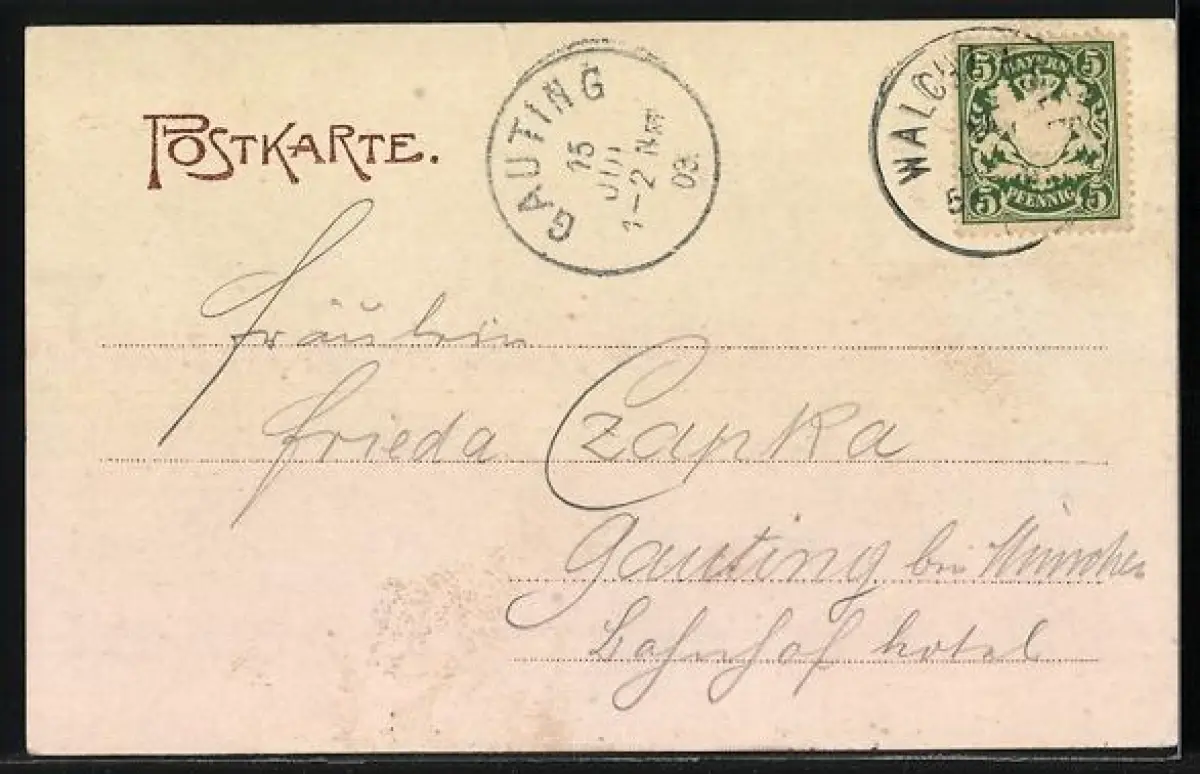 POSTKARTE.
GAUTING
15
JUL
1-2 NM
03.
WALCH
5
5 BAYERN 5
5 PFENNIG 5
Fräulein
Frieda Czapka
Gauting bei München
Bahnhof hotel